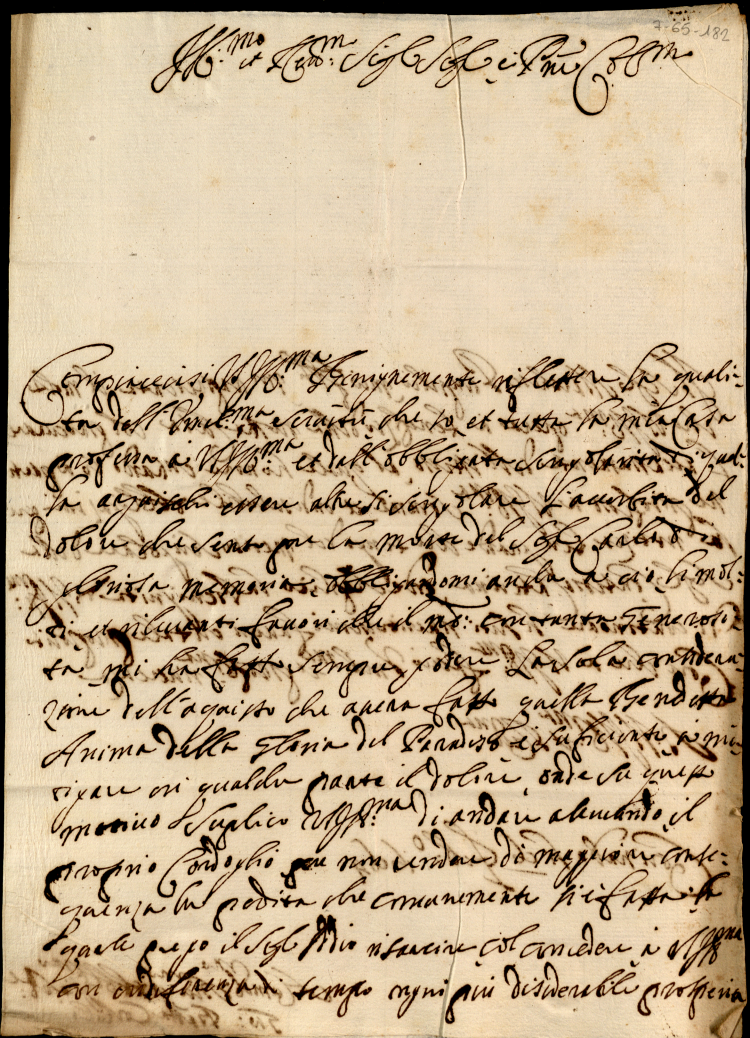 7-65-182
Ill:mo et Rev:m Sig.r Sig.r e P.ne Col.m
Compiaccisi VS Ill:ma Benignemente riflettere la quali-
tà dell' ma servitù che io, et tutta la mia Casa
professa à VS Ill:ma et dall' obbligata singolarità di quel-
la essere altresi singolare l'acerbità del
dolore che sento per la morte del Sig.r Carlo di
gloriosa memoria, obbligandomi anche a ciò li mol-
ti et rilevanti favori che il mo: con tanta generosi-
tà mi ha fatto sempre godere. La sola considera-
zione dell'aquisto che avera fatto quella Benedetta
Anima della Gloria del Paradiso è suficiente à mi-
tigare in qualche parte il dolore, onde su questo
motivo Suplico VS Ill:ma di andare alleviando il
proprio Cordoglio per non rendere di maggiore conse-
quenza la perdita che comunemente si è fatta la
quale prego il Sig.r Iddio risarcire col concedere à VS Ill:ma
con di tempo ogni più desiderabile prosperità